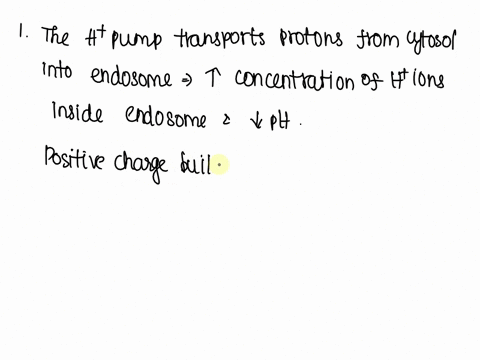 1. The H⁺ pump transports protons from cytosol
into endosome ⇒ ↑ concentration of H⁺ ions
Inside endosome & ↓ pH.
Positive charge buil